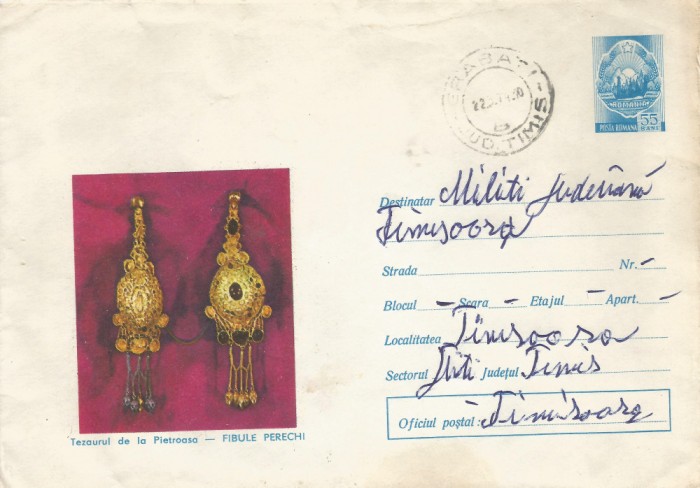 GRABATI
JUD. TIMIS
ROMANIA
POSTA ROMANA 55 BANI
Destinatar Militi Judeteană
Timisoara
Strada Nr. -
Blocul - Scara - Etajul - Apart. -
Localitatea Timisoara
Sectorul Judeţul Timis
Oficiul poştal: Timisoara
Tezaurul de la Pietroasa — FIBULE PERECHI